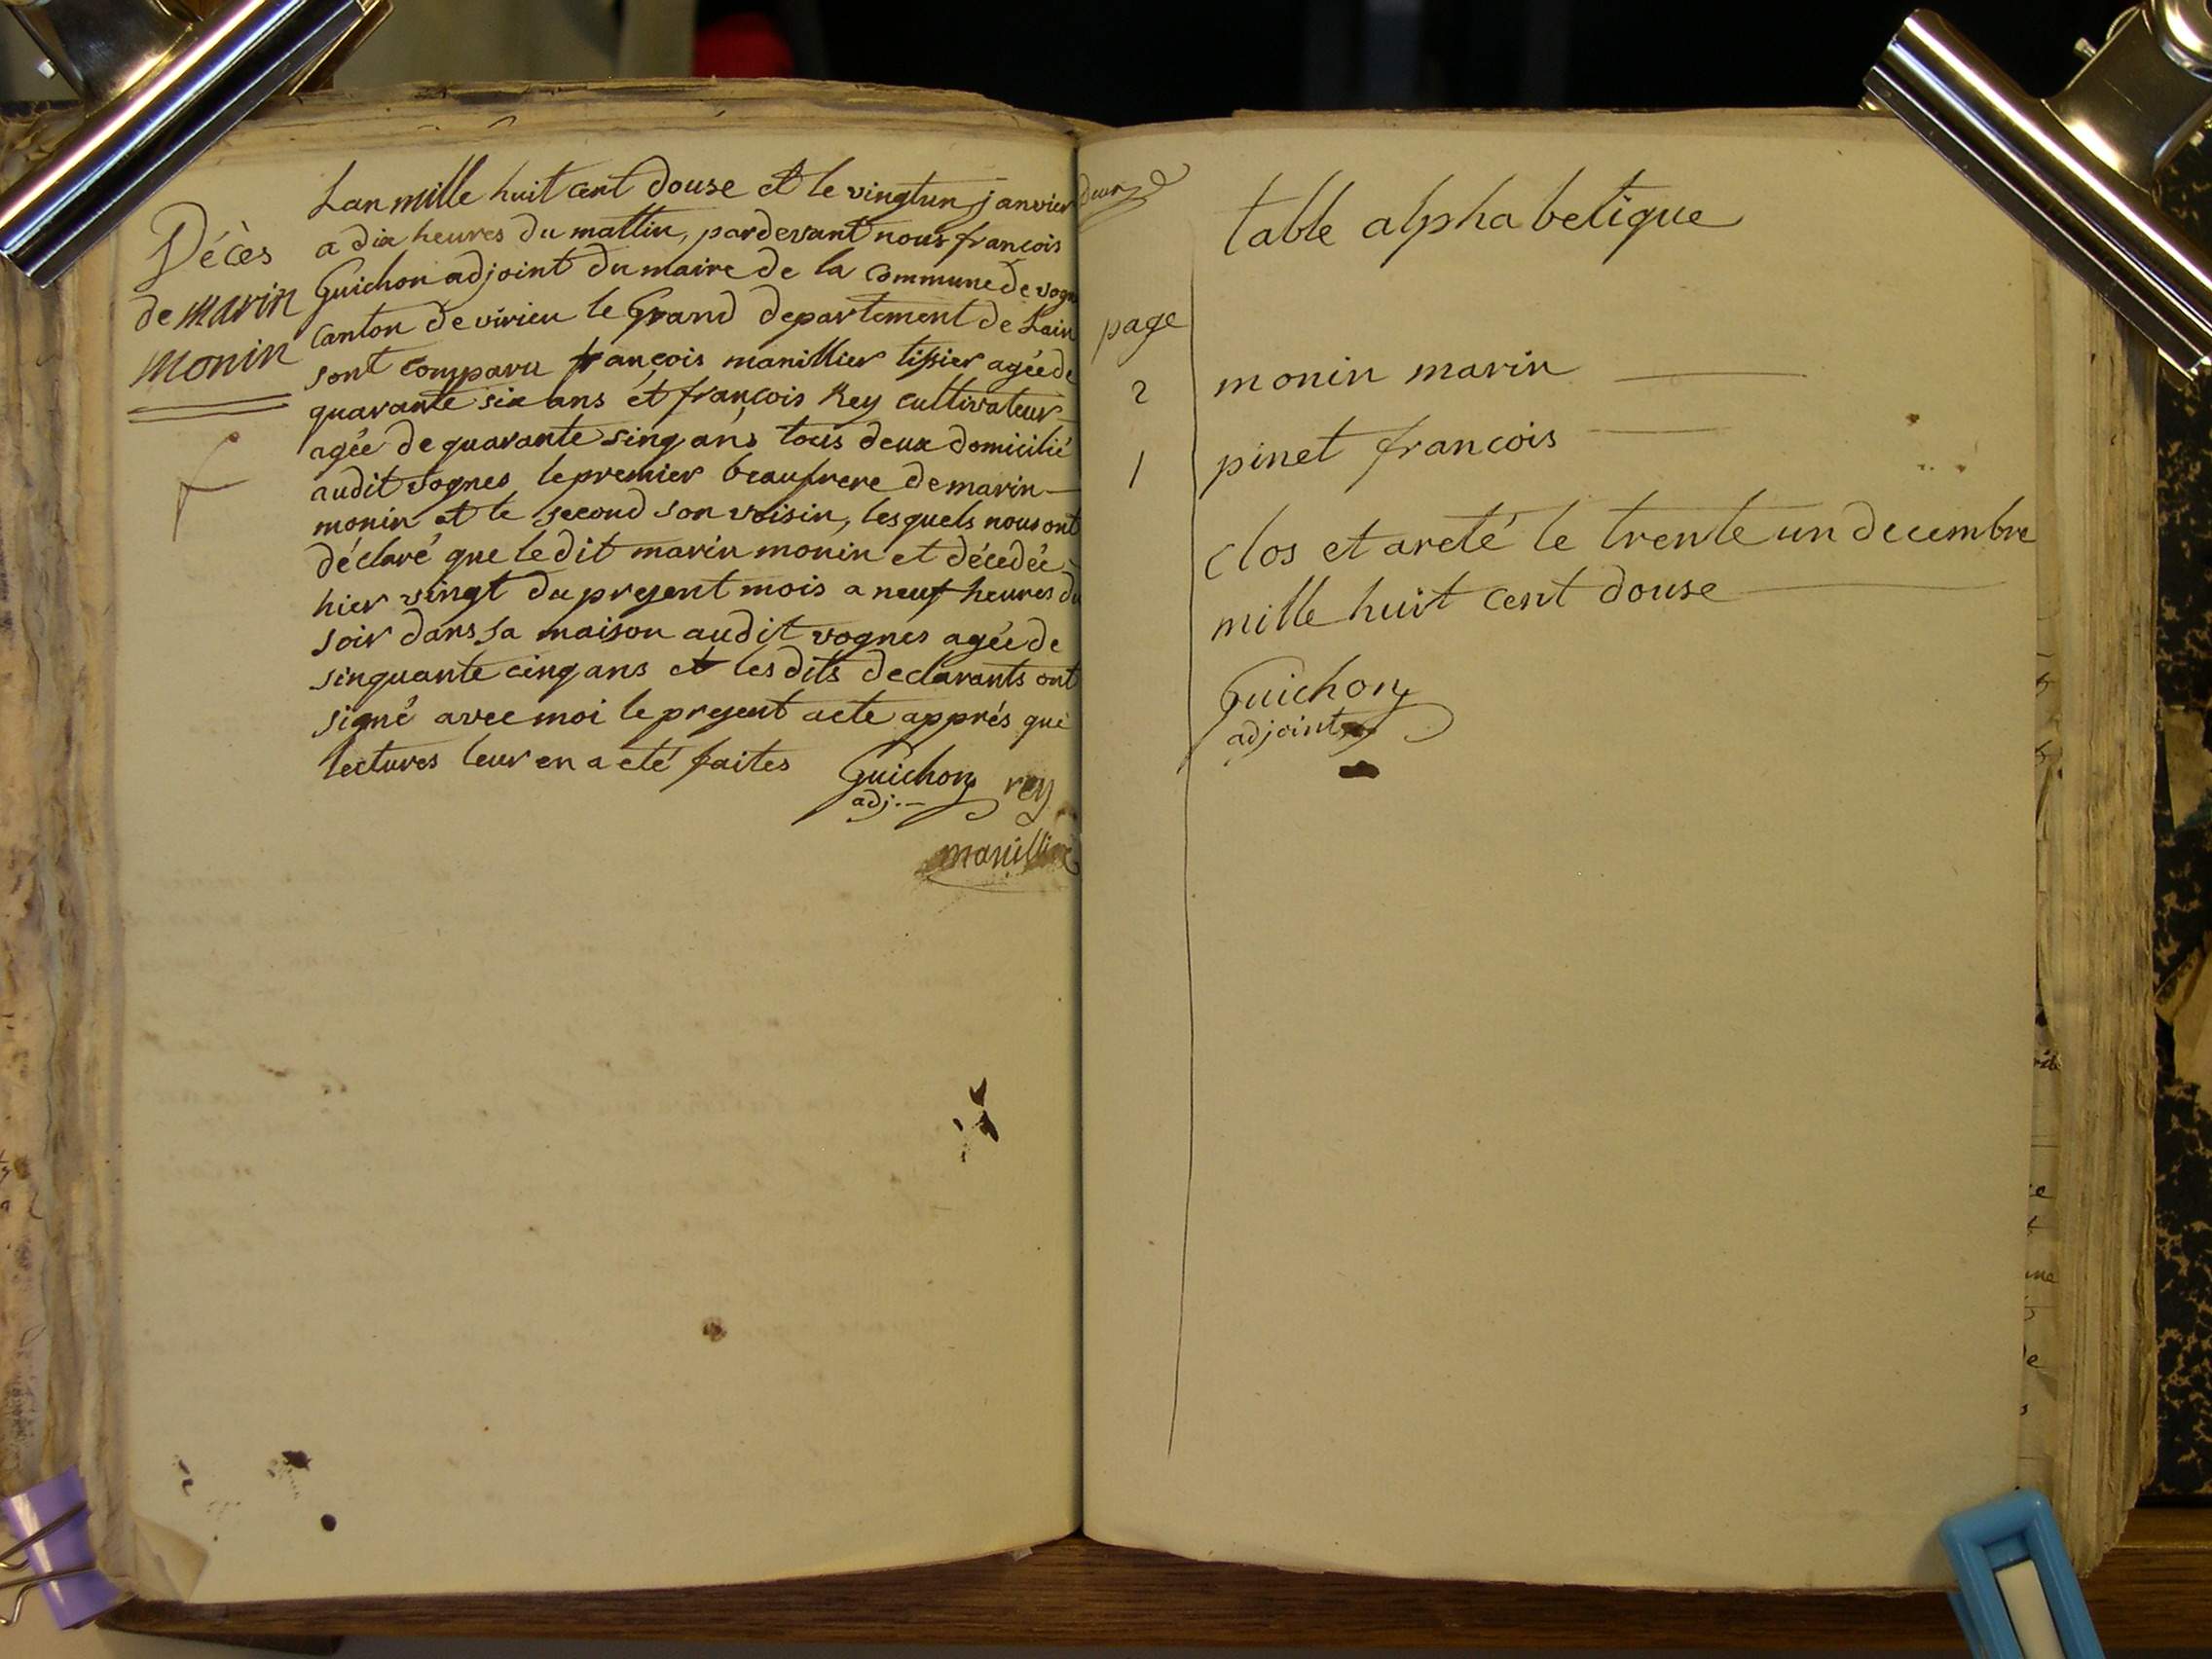 Décès
de marin
monin
Lan mille huit cent douse et le vingtun janvier
a dix heures du mattin, pardevant nous françois
Guichon adjoint du maire de la commune de vogn
canton de virieu le Grand departement de Lain
sont comparu françois manillier tissier agée de
quarante six ans et françois Rey cultivateur
agée de quarante sinq ans tous deux domicilié
audit vognes le premier beaufrere de marin
monin et le second son voisin, lesquels nous ont
déclaré que le dit marin monin et décedée
hier vingt du present mois a neuf heures du
soir dans sa maison audit vognes agée de
sinquante cinq ans et les dits declarants ont
signé avec moi le present acte apprés que
lectures leur en a eté faites
Guichon rey
adj.
manillier
table alphabetique
page
2 monin marin
1 pinet francois
clos et areté le trente un decembre
mille huit cent douse
Guichon
adjoint